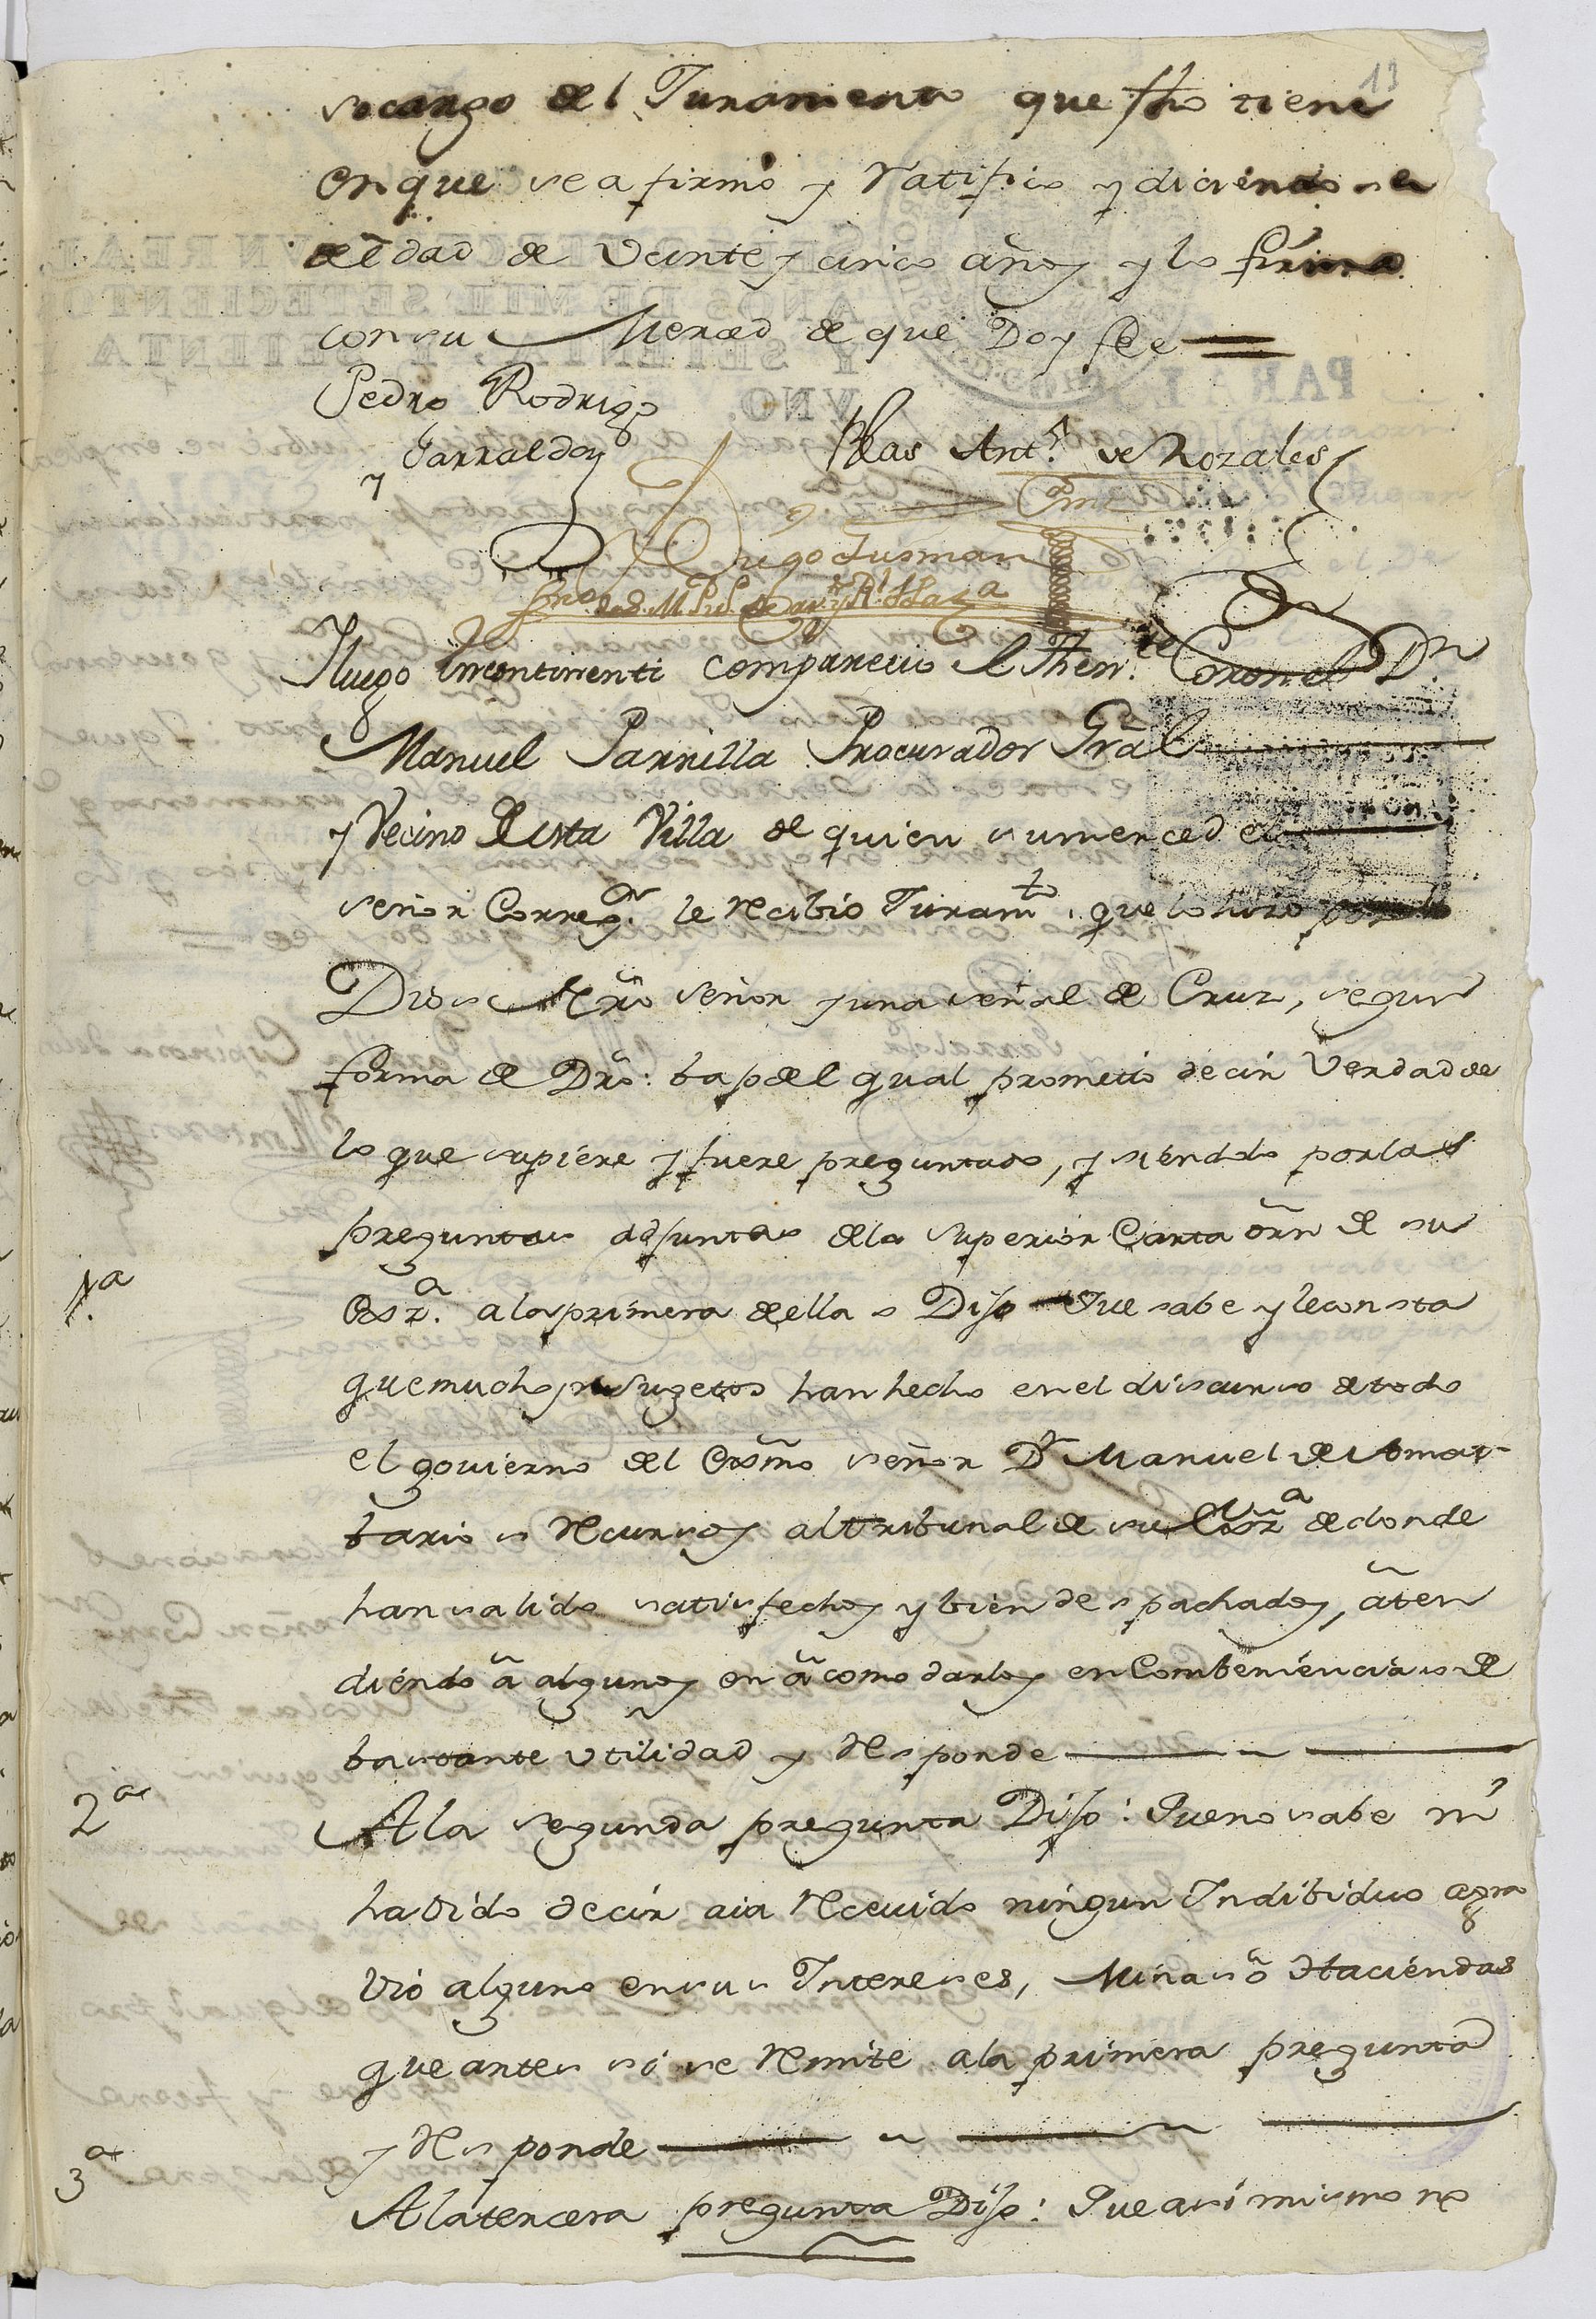 13
so cargo del Juramento que fho tiene
en que se afirmó y Ratifico y diciendo ser
de Edad de Veinte y cinco años y lo firma
con su Merced de que Doy fee =
Pedro Rodrigo
y Garraldoy
Blas Antº. de Rozales
Diego Gusman
Yluego Incontinenti comparecio el Then.te Coronel Dn.
Manuel Parrilla Procurador Grãl
y Vecino de esta Villa de quien su merced el
señor Correg.or le recibio Juramto. que lo hizo por
Dios Nrõ señor y una señal de Cruz, segun
forma de Drõ: bajo del qual prometió decir Verdad de
lo que supiere y fuere preguntado, y siendolo por las
preguntas adjuntas de la superior Carta orñ de su
Exza. a la primera de ellas Dijo Que sabe y le consta
1.a
que muchos Sugetos han hecho en el discurso de todo
el govierno del Exsmõ señor Dn Manuel de Amat
barios Recursos al tribunal de su Exza de donde
han salido satisfechos y bien despachados, aten
diendo a algunos en acomodarlos en Combeniencias de
bastante vtilidad y Responde
2a
A la segunda pregunta Dijo: Que no sabe ni
ha oido decir aia Recevido ningun Indibiduo agra
vio alguno en sus Intereses, Minas ò Haciendas
que antes si se Remite a la primera pregunta
y Responde
3a
A la tercera pregunta Dijo: Que asi mismo no